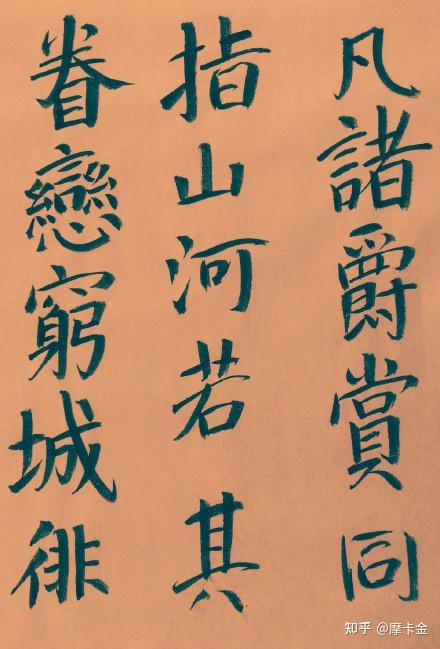 凡諸爵賞同
指山河若其
眷戀窮城徘
知乎 @摩卡金